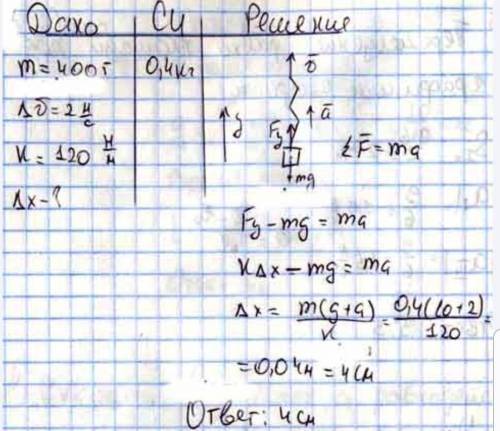 Дано СИ Решение
m = 400г 0,4кг
Δv̄ = 2 м/с
к = 120 Н/м
Δx - ?
v̄
ā
y
Fy
mg
ΣF̄ = ma
Fy - mg = ma
кΔx - mg = ma
Δx = m(g+a)/к = 0,4(10+2)/120 =
= 0,04м = 4см
Ответ: 4см